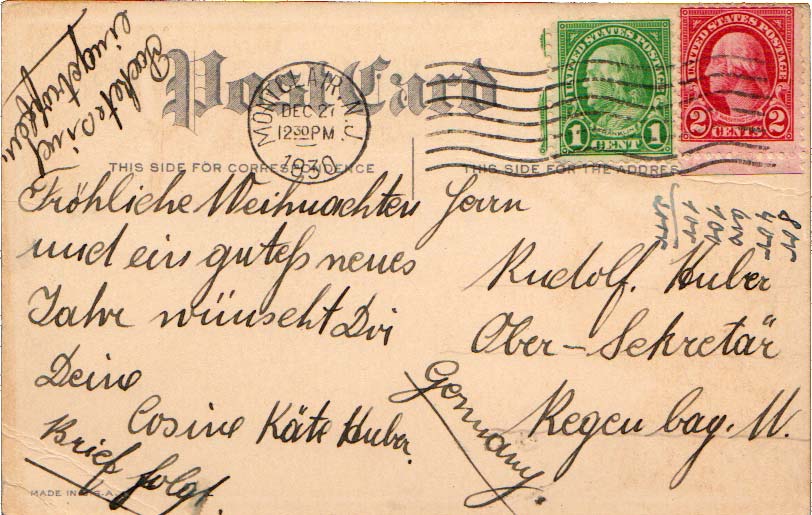 Post Card
THIS SIDE FOR CORRESPONDENCE
THIS SIDE FOR THE ADDRESS
MONTCLAIR, N.J.
DEC 27
12 30 PM
1930
UNITED STATES POSTAGE
FRANKLIN
1 CENT 1
UNITED STATES POSTAGE
WASHINGTON
2 CENTS 2
eingetroffen
Fröhliche Weihnachten
und ein gutes neues
Jahr wünscht Dir
Deine
Cosine Käte Huber.
Brief folgt.
Herrn
Rudolf. Huber
Ober-Sekretär
Regen bay. W.
Germany.
MADE IN U.S.A.